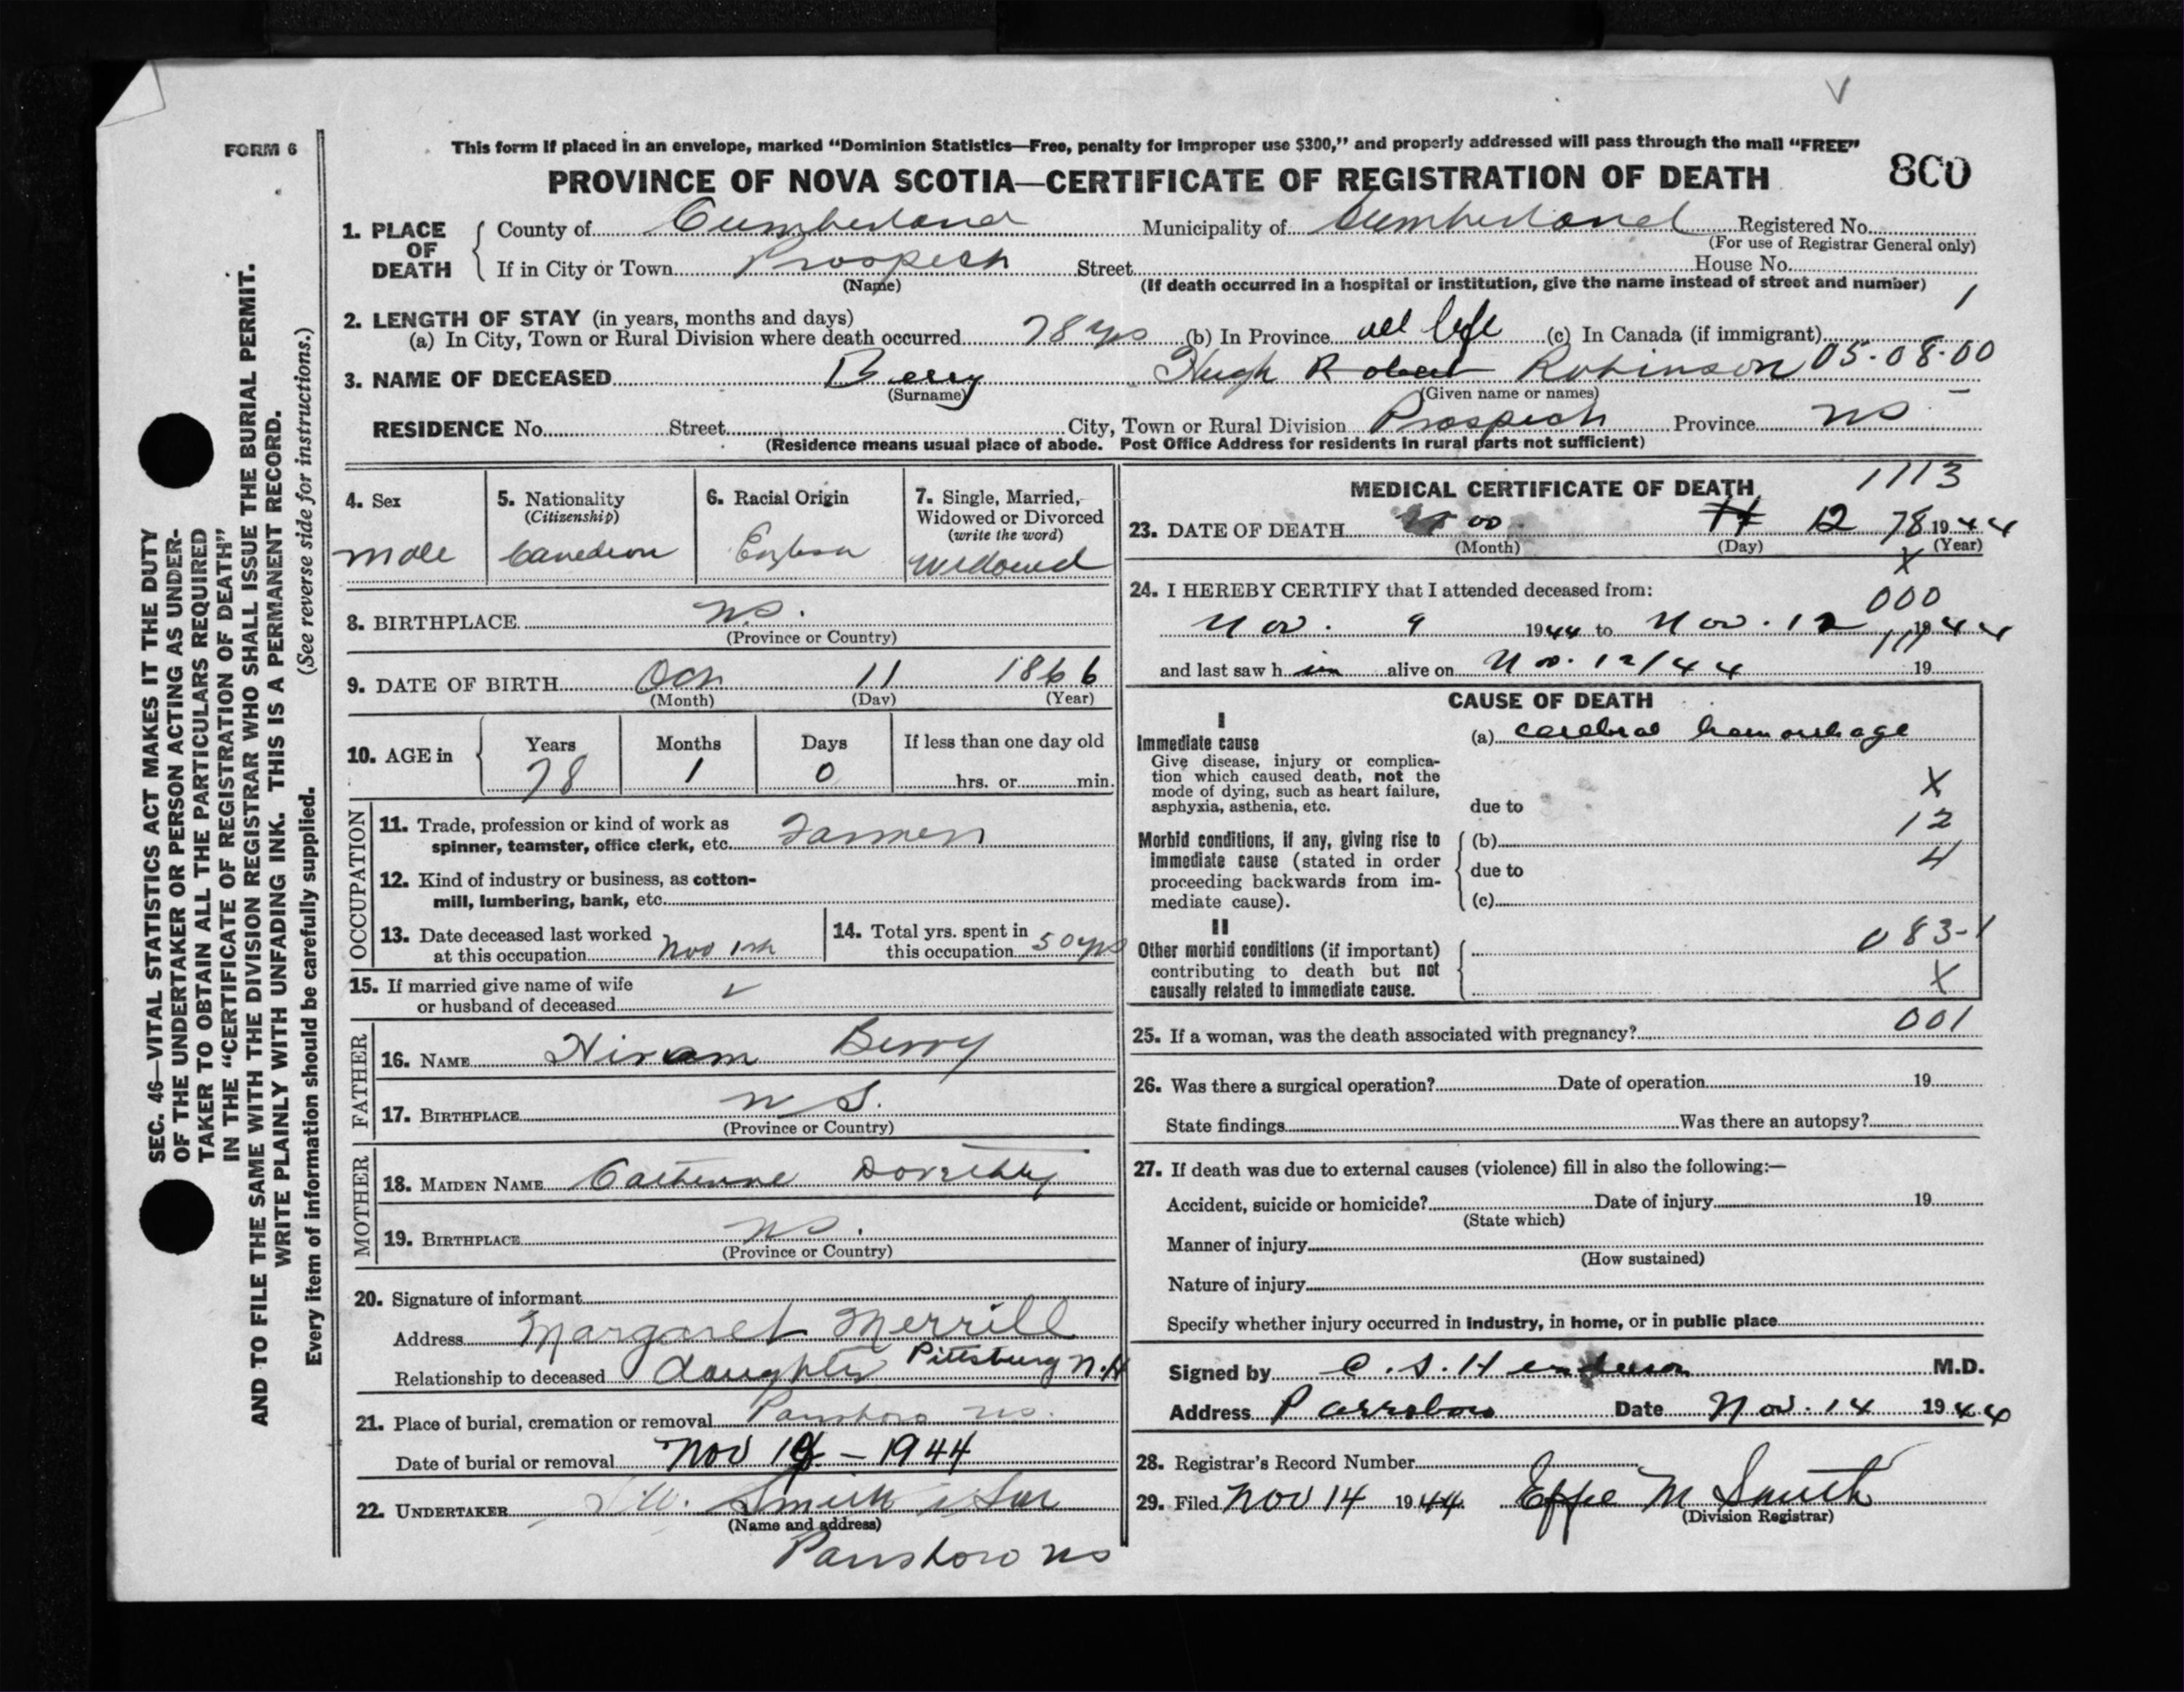 FORM 6
This form if placed in an envelope, marked “Dominion Statistics—Free, penalty for improper use $300,” and properly addressed will pass through the mail “FREE”
PROVINCE OF NOVA SCOTIA—CERTIFICATE OF REGISTRATION OF DEATH 800
1. PLACE OF DEATH County of Cumberland Municipality of Cumberland Registered No.
(For use of Registrar General only)
If in City or Town Prospect Street House No.
(Name) (If death occurred in a hospital or institution, give the name instead of street and number) 1
2. LENGTH OF STAY (in years, months and days)
(a) In City, Town or Rural Division where death occurred 78 yrs (b) In Province all life (c) In Canada (if immigrant)
3. NAME OF DECEASED Berry Hugh Robert Robinson 05-08-00
(Surname) (Given name or names)
RESIDENCE No. Street City, Town or Rural Division Prospect Province NS
(Residence means usual place of abode. Post Office Address for residents in rural parts not sufficient)
SEC. 46—VITAL STATISTICS ACT MAKES IT THE DUTY
OF THE UNDERTAKER OR PERSON ACTING AS UNDER-
TAKER TO OBTAIN ALL THE PARTICULARS REQUIRED
IN THE “CERTIFICATE OF REGISTRATION OF DEATH”
AND TO FILE THE SAME WITH THE DIVISION REGISTRAR WHO SHALL ISSUE THE BURIAL PERMIT.
WRITE PLAINLY WITH UNFADING INK. THIS IS A PERMANENT RECORD.
Every item of information should be carefully supplied. (See reverse side for instructions.)
4. Sex
Male
5. Nationality
(Citizenship)
Canadian
6. Racial Origin
English
7. Single, Married,
Widowed or Divorced
(write the word)
Widowed
8. BIRTHPLACE N.S.
(Province or Country)
9. DATE OF BIRTH Oct 11 1866
(Month) (Day) (Year)
10. AGE in Years Months Days If less than one day old
78 1 0 hrs. or min.
OCCUPATION
11. Trade, profession or kind of work as
spinner, teamster, office clerk, etc. Farmer
12. Kind of industry or business, as cotton-
mill, lumbering, bank, etc.
13. Date deceased last worked
at this occupation Nov 1st
14. Total yrs. spent in
this occupation 50 yrs
15. If married give name of wife
or husband of deceased
FATHER
16. NAME Hiram Berry
17. BIRTHPLACE N S.
(Province or Country)
MOTHER
18. MAIDEN NAME Catherine
19. BIRTHPLACE NS.
(Province or Country)
20. Signature of informant
Address Margaret Merrill
Relationship to deceased daughter Pittsburg N.H
21. Place of burial, cremation or removal Parrsboro NS.
Date of burial or removal Nov 1944
22. UNDERTAKER Smith & Son
(Name and address)
Parrsboro NS
MEDICAL CERTIFICATE OF DEATH 1113
23. DATE OF DEATH Nov 12 78 1944
(Month) (Day) (Year)
X
24. I HEREBY CERTIFY that I attended deceased from:
000
Nov. 9 1944 to Nov. 12 1944
111
and last saw him alive on Nov. 12/44 19
CAUSE OF DEATH
I
Immediate cause (a) cerebral hemorrhage
Give disease, injury or complica-
tion which caused death, not the
mode of dying, such as heart failure,
asphyxia, asthenia, etc. due to
X
12
Morbid conditions, if any, giving rise to (b)
immediate cause (stated in order due to 4
proceeding backwards from im-
mediate cause). (c)
II
Other morbid conditions (if important) 083-1
contributing to death but not
causally related to immediate cause. X
25. If a woman, was the death associated with pregnancy? 001
26. Was there a surgical operation? Date of operation 19
State findings Was there an autopsy?
27. If death was due to external causes (violence) fill in also the following:—
Accident, suicide or homicide? Date of injury 19
(State which)
Manner of injury
(How sustained)
Nature of injury
Specify whether injury occurred in industry, in home, or in public place
Signed by C. S. Henderson M.D.
Address Parrsboro Date Nov. 14 1944
28. Registrar's Record Number
29. Filed Nov 14 1944 Effie M Smith
(Division Registrar)